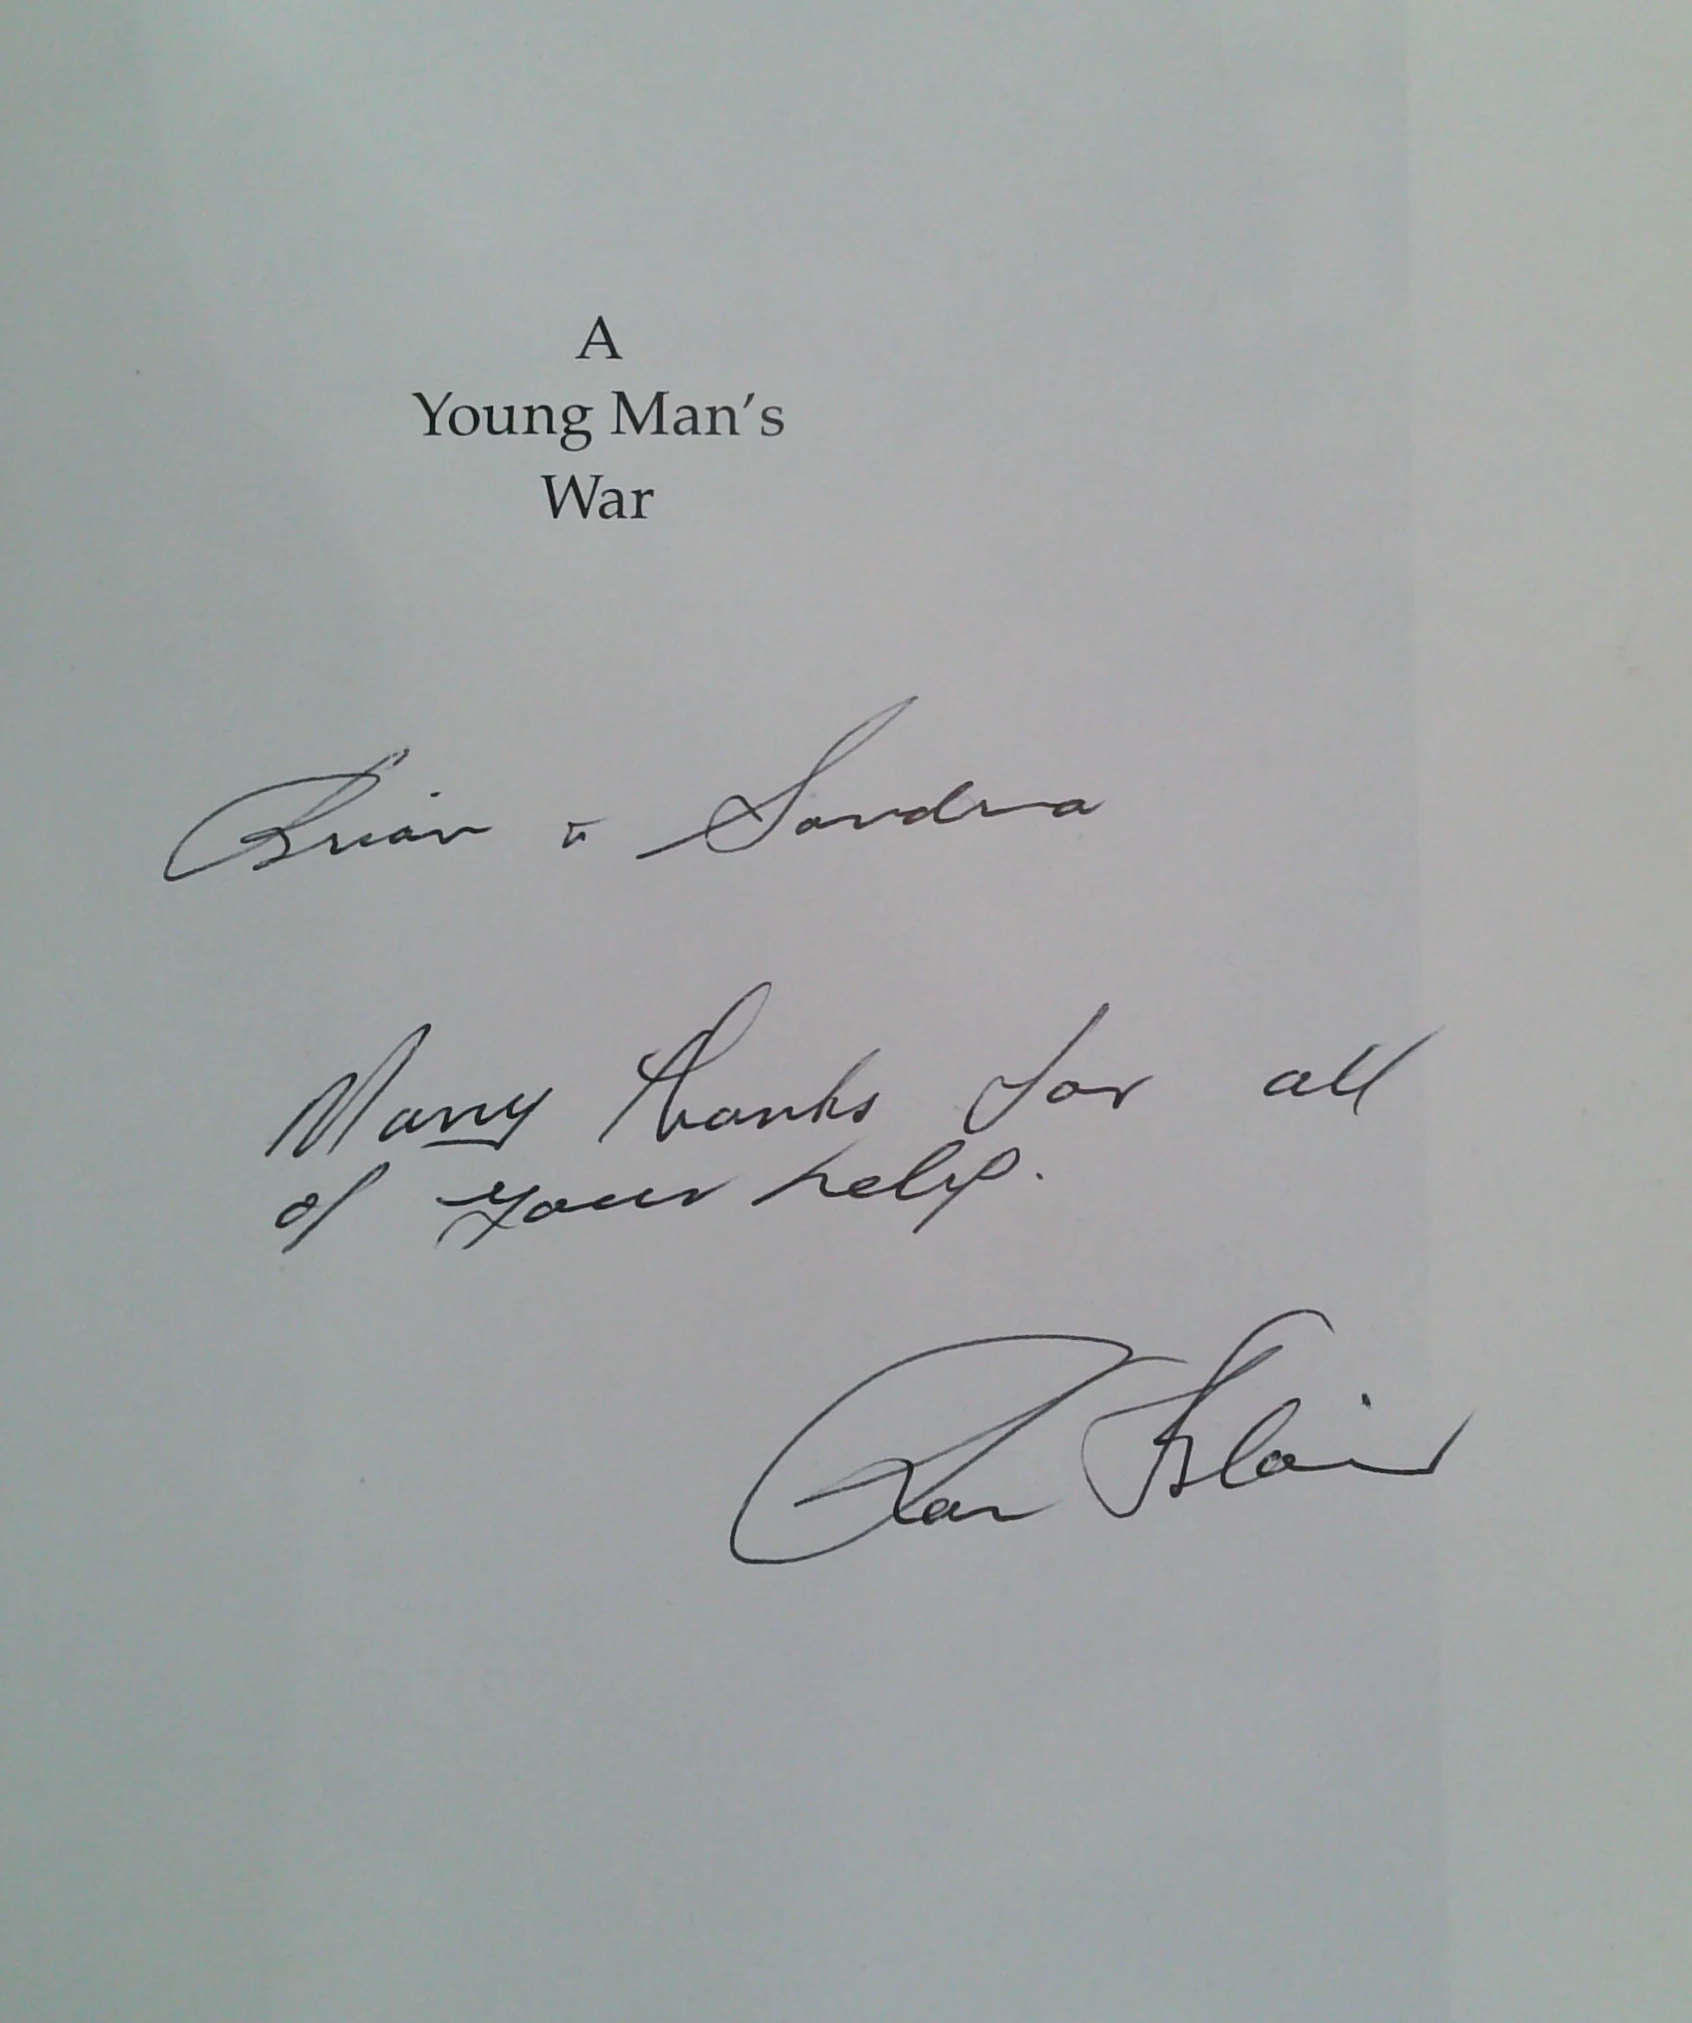 A
Young Man's
War
Brian & Sandra
Many thanks for all
of your help.
Ron Blair